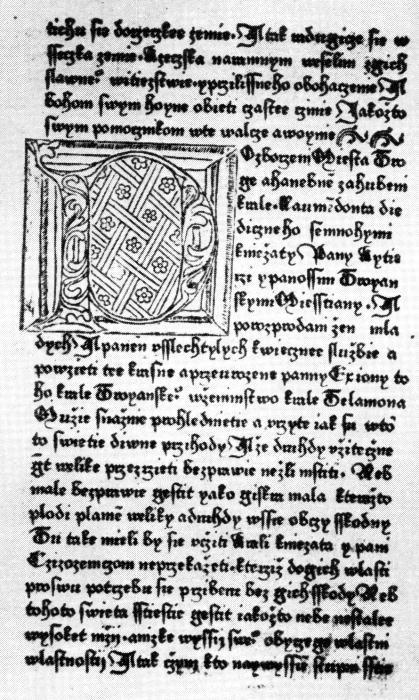 tichu ſie dogezkee zemie. A tak radugicze ſie w
ſſeczka zemie. Rzezſka naramnym weſelim zgich
ſlawne° witiezſtwie. y przieliſſneho obohaczenie A
bohom ſwym hoyne obieti czaſtee czinie Jakožto
ſwym pomocznikom wte walcze a woynie
O zborzeni Mieſta Tro
ge a hanebne zahubeni
krale. Laumedonta die
diczneho ſe mnohymi
kniežaty Pany Rytie
rzi y panoſſmi Troyan
ſkymi Mieſſtiany. A
po rozprodani žen mla
dych A panen vſſlechtylych k wieczne ſluzbie a
powzieti tee kraſne a przeurozene panny Exiony to
ho krale Troyanſke° wzeminſtwo krale Telamona
Mužie ſnažnie prohlednietie a vrzyte iak ſu w to
to ſwietie diwne przihody A že druhdy vžiteczne
gt welike przezrzieti bezprawie nežli mſtiti. Neb
male bezprawie geſtit yako giſkra mala kteražto
plodi plamen weliky a druhdy wſſie obczy ſſkodny
Tu take mieli by ſie vcziti Krali kniezata y pani
Czizozemczom neprzekažeti. kterziz do gich wlaſti
pro ſwu potrzebu ſie prziberu bez gich ſſkody Neb
tohoto ſwieta ſſtieſtie geſtit iakožto nebe neſtalee
wyſokee mijni. a nizke wyſſij ſwe° obyczege wlaſtni
wlaſtnoſtij A tak czym kto naywyſſie ſtupni ſſtie